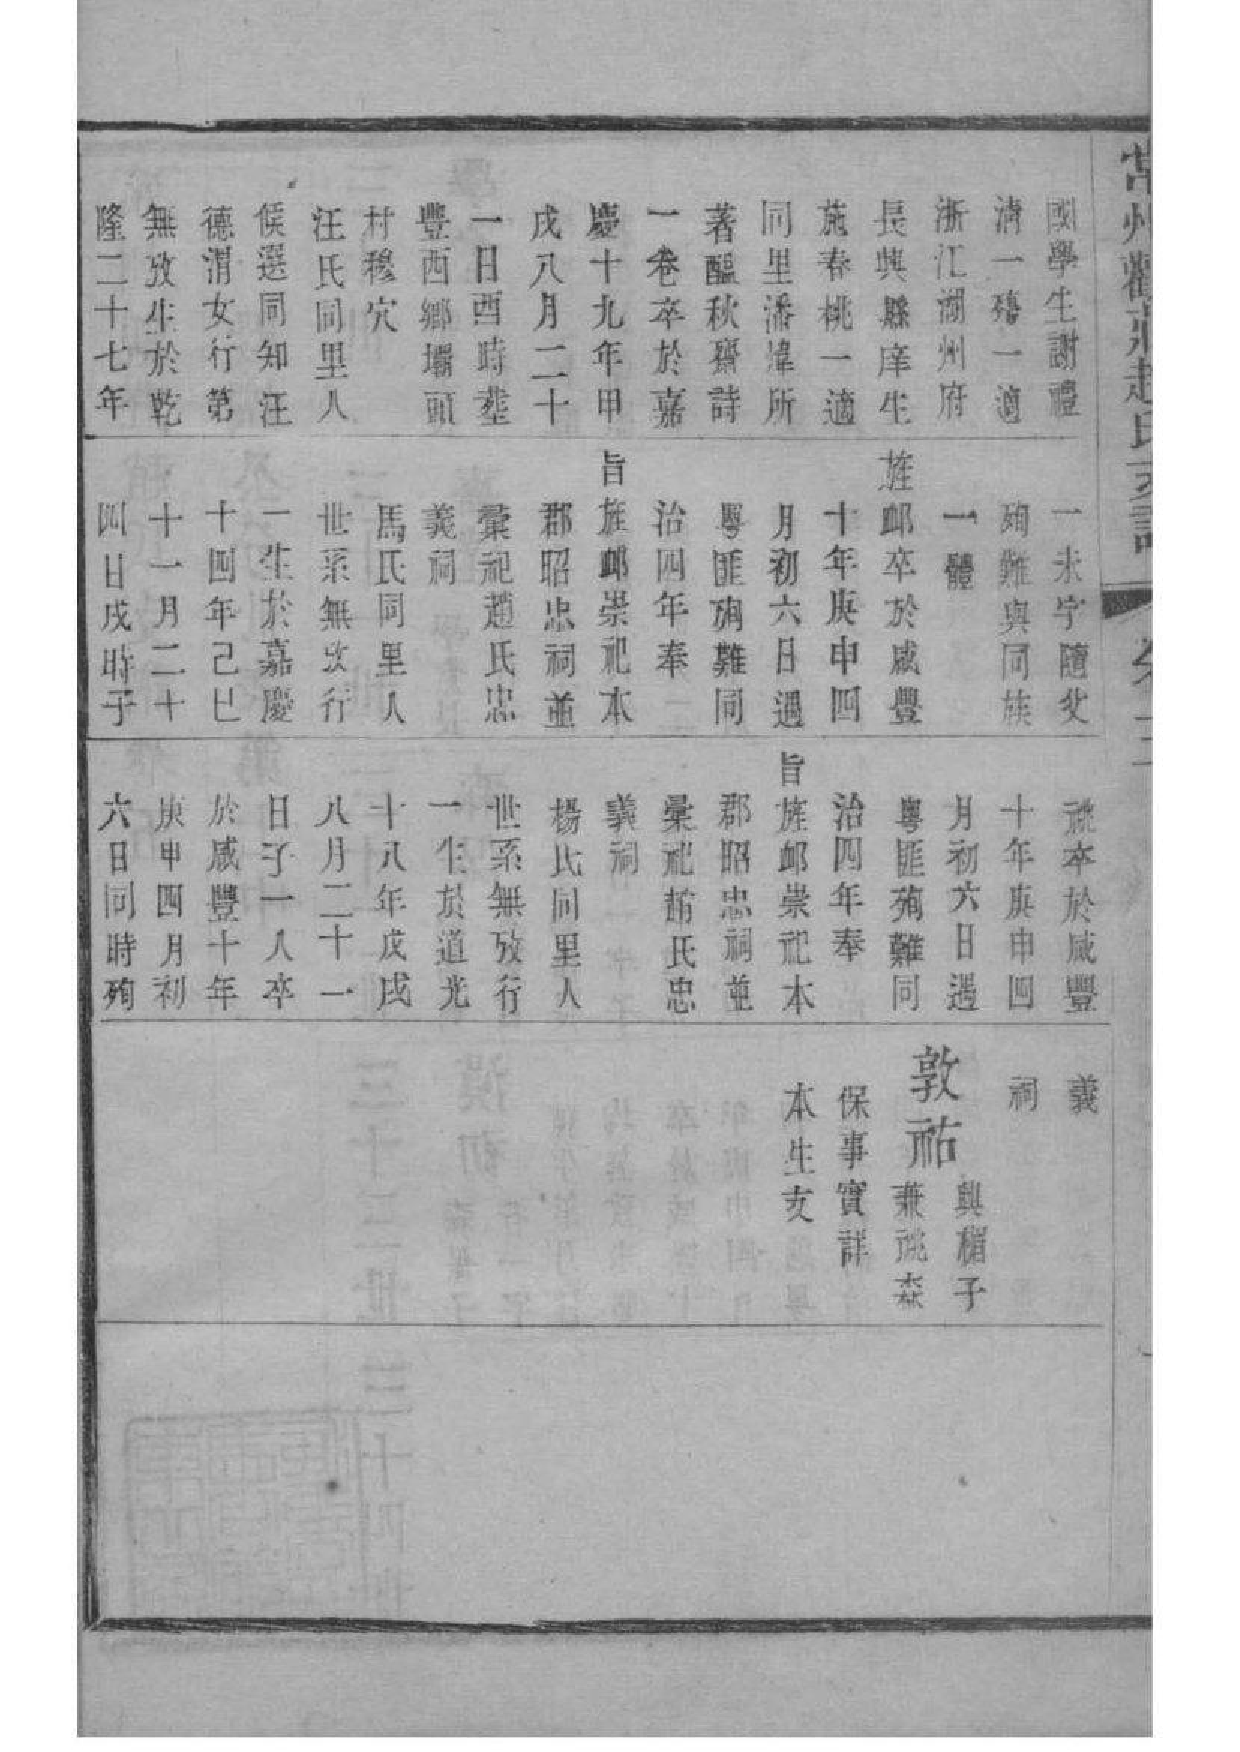 常州觀莊趙氏支譜
國學生謝禮
清一殤一適
浙江湖州府
長興縣庠生
施春桃一適
同里潘煒所
著醞秋齋詩
一卷卒於嘉
慶十九年甲
戌八月二十
一日酉時葬
豐西鄉壩頭
村穆穴
汪氏同里人
候選同知汪
德渭女行第
無攷生於乾
隆二十七年
一未字隨父
殉難與同族
一體
旌卹卒於咸豐
十年庚申四
月初六日遇
粵匪殉難同
治四年奉
旨旌卹崇祀本
郡昭忠祠並
彙祀趙氏忠
義祠
馬氏同里人
世系無攷行
一生於嘉慶
十四年己巳
十一月二十
四日戌時子
祧卒於咸豐
十年庚申四
月初六日遇
粵匪殉難同
治四年奉
旨旌卹崇祀本
郡昭忠祠並
彙祀趙氏忠
義祠
楊氏同里人
世系無攷行
一生於道光
十八年戊戌
八月二十一
日子一人卒
於咸豐十年
庚申四月初
六日同時殉
義
祠
敦祐
與楣子
兼祧森
保事實詳
本生支